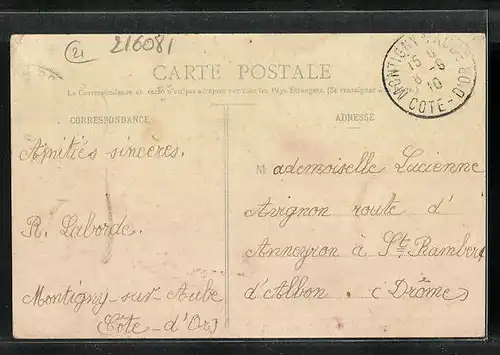 21
216081
CARTE POSTALE
La Correspondance au recto n'est pas acceptée par tous les Pays Étrangers. (Se renseigner à
CORRESPONDANCE
ADRESSE
MONTIGNY S AUBE
15
8 -6
10
COTE-D'OR
Amitiés sincères.
R. Laborde.
Montigny-sur-Aube
(Côte-d'Or)
Mademoiselle Lucienne
Avignon route d'
Anneyron à St Rambert
d'Albon. (Drôme)